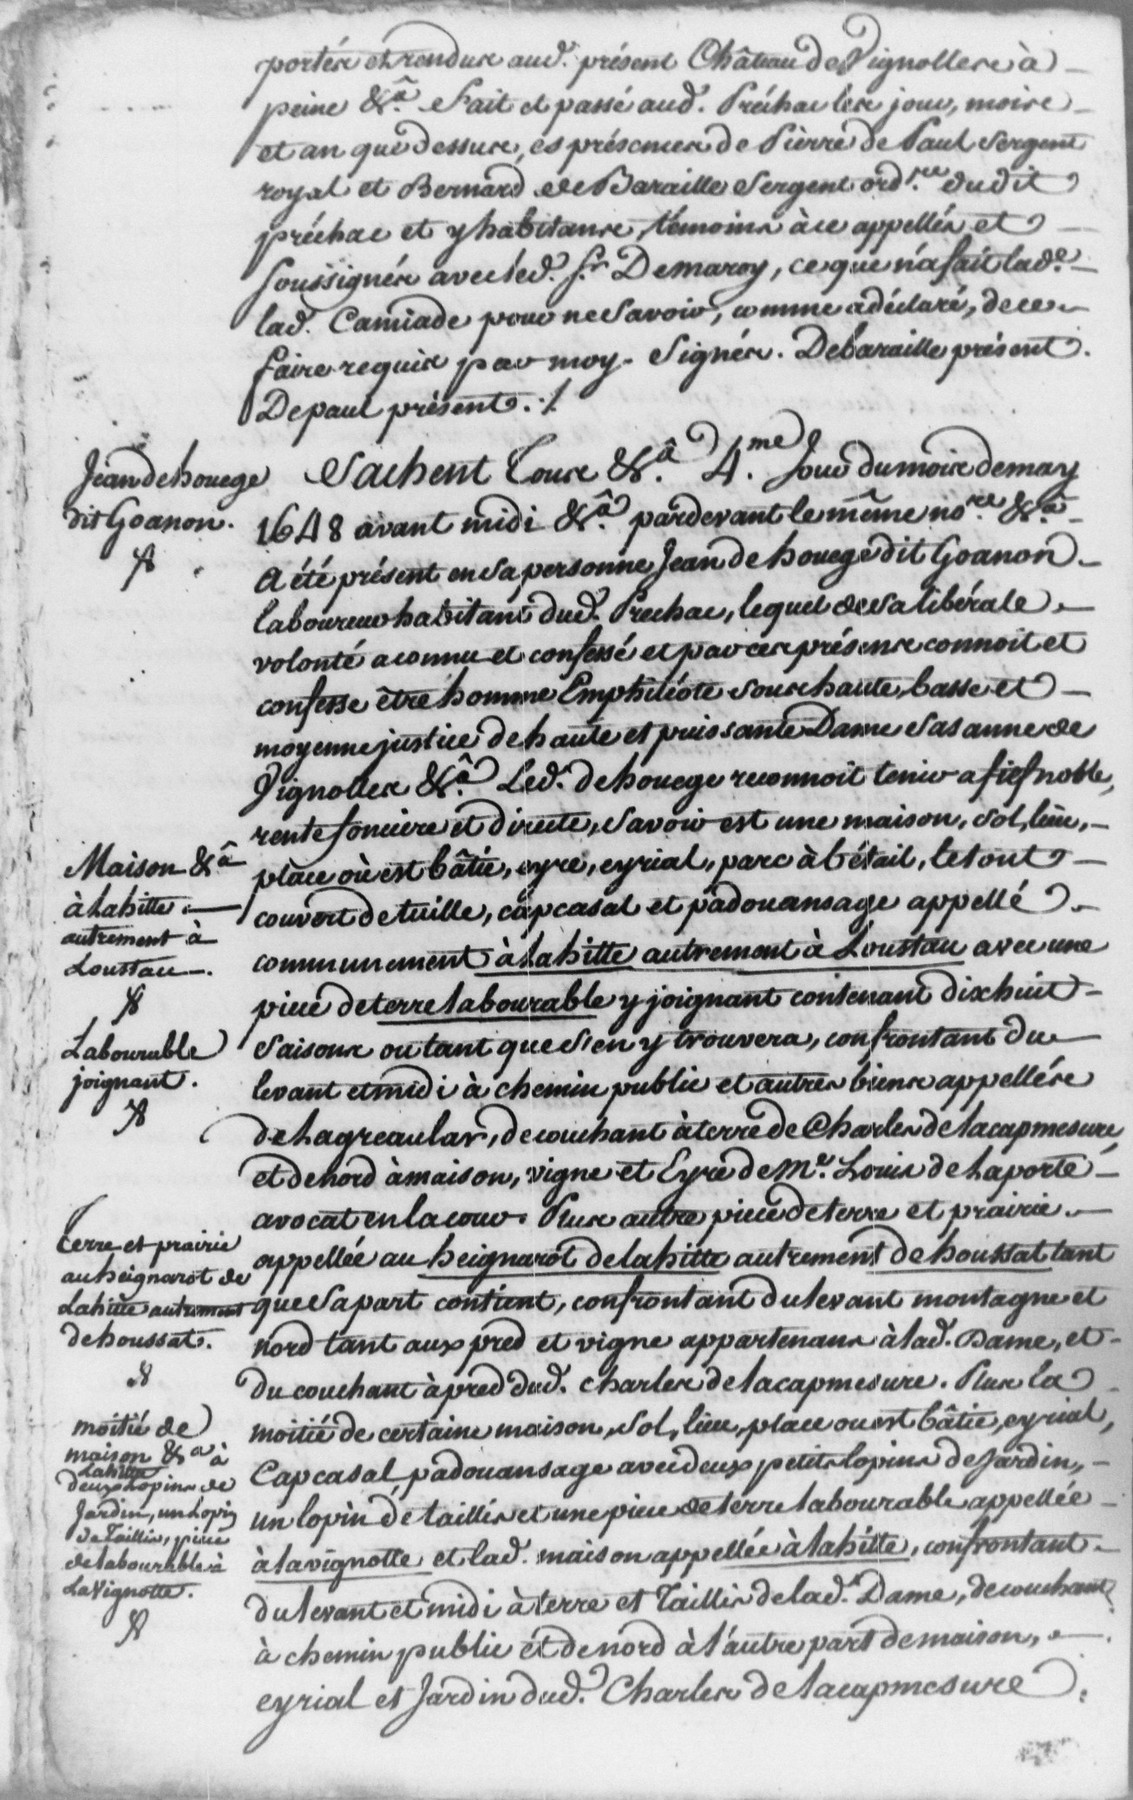 portés et rendus aud. présent Château de Vignolles à
peine &a. Fait et passé aud. Préchac les jour, mois
et an que dessus, es présences de Pierre de Paul Sergent
royal et Bernard de Baraille Sergent ord.re dudit
préchac et y habitans, témoins à ce appellés et
soussignés avec led. Sr. Demaroy, ce que n'a fait lad.e
lad. Camiade pour ne savoir, comme a déclaré, de ce
faire requis par moy. Signés. Debaraille présent.
Depaul présent. ./.
Jean de houege
dit Goanon.
Sachent Tous &a. 4.me Jour du mois de may
1648 avant midi &a. pardevant le même no.re &a.
A été présent en sa personne Jean de houege dit Goanon
laboureur habitant dud. Prechac, lequel de sa libérale
volonté a connu et confessé et par ces présens connoit et
confesse être homme Emphitéote sous haute, basse et
moyenne justice de haute et puissante Dame Sasanne de
Vignolles &a. Led. dehouege reconnoit tenir a fief noble,
rente fonciere et directe, savoir est une maison, sol, lieu,
Maison &a
à Lahitte
autrement à
Loustau.
place où est bâtie, eyre, eyrial, parc à bétail, le tout
couvert de tuille, capcasal et padouansage appellé
communement à Lahitte autrement à Loustau avec une
piece de terre labourable y joignant contenant dix huit
Labourable
joignant.
saisons ou tant que s'en y trouvera, confrontant du
levant et midi à chemin public et autres biens appellés
de Lagreaular, de couchant à terre de Charles de lacapmesure,
et de nord à maison, vigne et Eyre de Me. Louis de Laporte
avocat en la cour. Plus autre piece de terre et prairie
Terre et prairie
au heignarot de
Lahitte autrement
dehoussat.
appellée au heignarot de lahitte autrement de houssat tant
que sa part contient, confrontant du levant montagne et
nord tant aux pred et vigne appartenans à lad. Dame, et
du couchant à pred dud. Charles de lacapmesure. Plus la
moitié de
maison &a à
Lahitte
deux Lopins de
Jardin, un Lopin
de Taillis, piece
de labourable à
LaVignotte.
moitié de certaine maison, sol, lieu, place ou est bâtie, eyrial,
Capcasal, padouansage avec deux petits lopins de Jardin,
un lopin de taillis et une piece de terre labourable appellée
à lavignotte et lad. maison appellée à lahitte, confrontant
du levant et midi à terre et Taillis de lad. Dame, de couchant
à chemin public et de nord à l'autre part de maison,
eyrial et Jardin dud. Charles de lacapmesure.